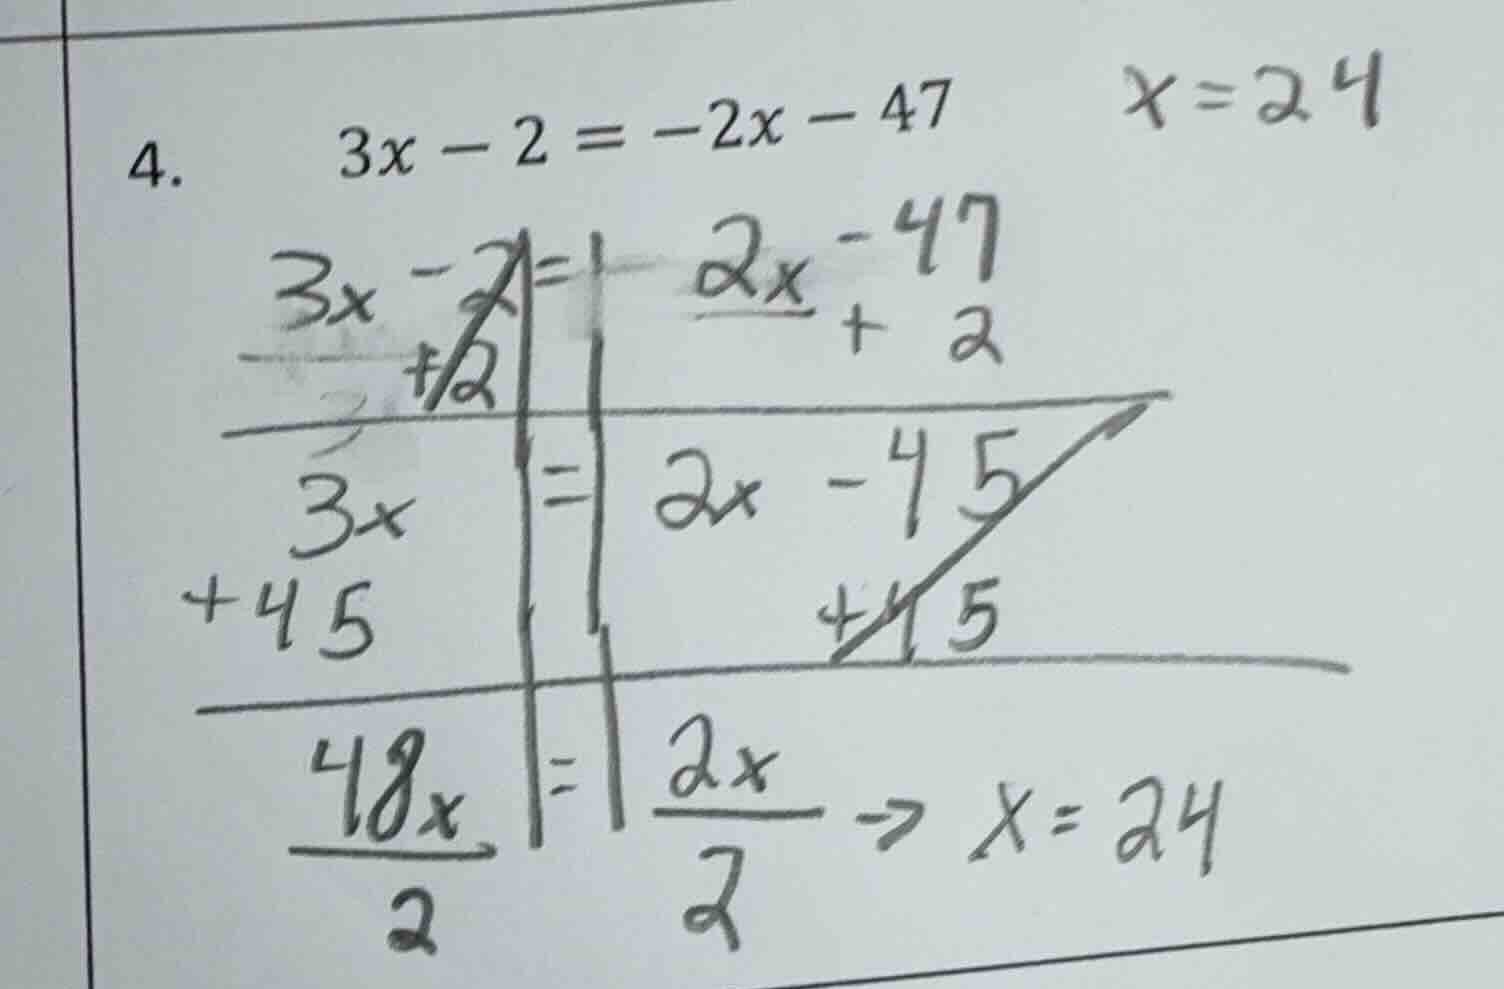 4. 3x − 2 = −2x − 47 x = 24
3x - 2 = 2x - 47
+2 + 2
3x = 2x - 45
+45 +45
48x = 2x → x = 24
2 2